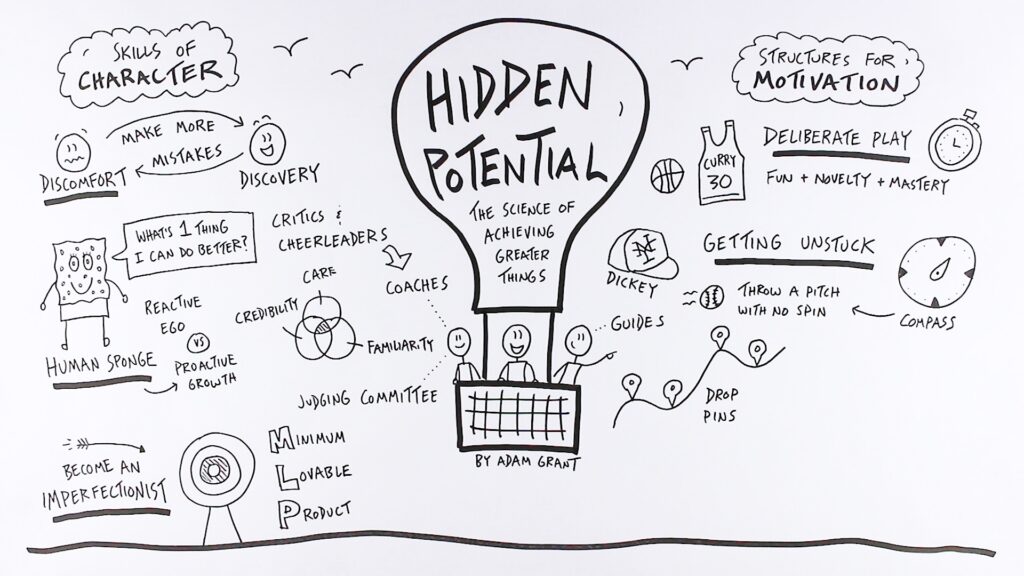 SKILLS OF
CHARACTER
MAKE MORE
MISTAKES
DISCOMFORT
DISCOVERY
WHAT'S 1 THING
I CAN DO BETTER?
CRITICS &
CHEERLEADERS
COACHES
CARE
CREDIBILITY
FAMILIARITY
REACTIVE
EGO
VS
PROACTIVE
GROWTH
HUMAN SPONGE
JUDGING COMMITTEE
BECOME AN
IMPERFECTIONIST
MINIMUM
LOVABLE
PRODUCT
HIDDEN
POTENTIAL
THE SCIENCE OF
ACHIEVING
GREATER
THINGS
BY ADAM GRANT
STRUCTURES FOR
MOTIVATION
CURRY
30
DELIBERATE PLAY
FUN + NOVELTY + MASTERY
NY
DICKEY
GETTING UNSTUCK
THROW A PITCH
WITH NO SPIN
COMPASS
GUIDES
DROP
PINS